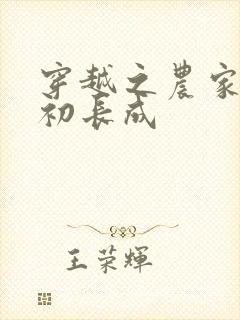 穿越之農家
初長成
王榮輝